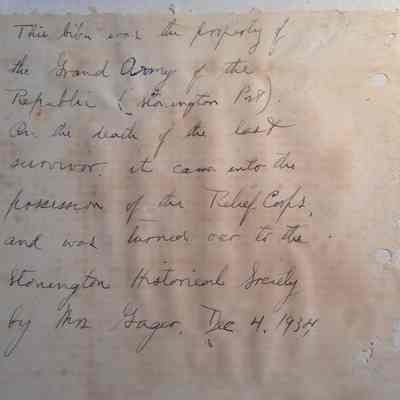 This bible was the property of
the Grand Army of the
Republic (Stonington Post).
On the death of the last
survivor, it came into the
possession of the Relief Corps,
and was turned over to the
Stonington Historical Society
by Mrs Gager, Dec 4, 1934